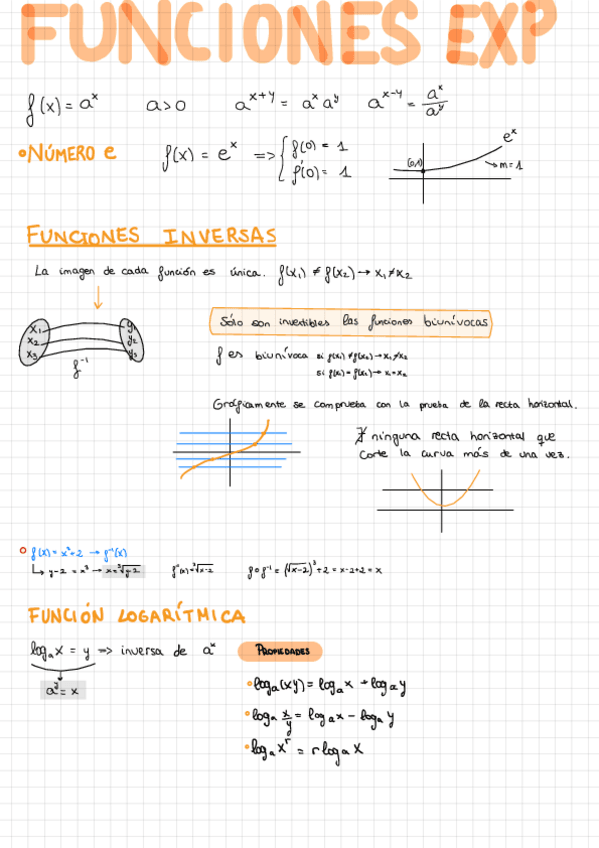 FUNCIONES EXP
f(x) = aˣ a>0 aˣ⁺ʸ = aˣ aʸ aˣ⁻ʸ = aˣ/aʸ
• NÚMERO e f(x) = eˣ => { f(0) = 1
f'(0) = 1
eˣ
(0,1)
→ m = 1
FUNCIONES INVERSAS
La imagen de cada función es única. f(x₁) ≠ f(x₂) → x₁ ≠ x₂
x₁ y₁
x₂ y₂
x₃ y₃
f⁻¹
Sólo son invertibles las funciones biunívocas
f es biunívoca si f(x₁) ≠ f(x₂) → x₁ ≠ x₂
si f(x₁) = f(x₂) → x₁ = x₂
Gráficamente se comprueba con la prueba de la recta horizontal.
∄ ninguna recta horizontal que
corte la curva más de una vez.
f(x) = x³+2 → f⁻¹(x)
↳ y-2 = x³ → x = ³√y-2 f⁻¹(x) = ³√x-2 f∘f⁻¹ = (³√x-2)³ + 2 = x-2+2 = x
FUNCIÓN LOGARÍTMICA
logₐx = y => inversa de aˣ
aʸ = x
PROPIEDADES
• logₐ(xy) = logₐx + logₐy
• logₐ x/y = logₐx - logₐy
• logₐxʳ = r logₐx